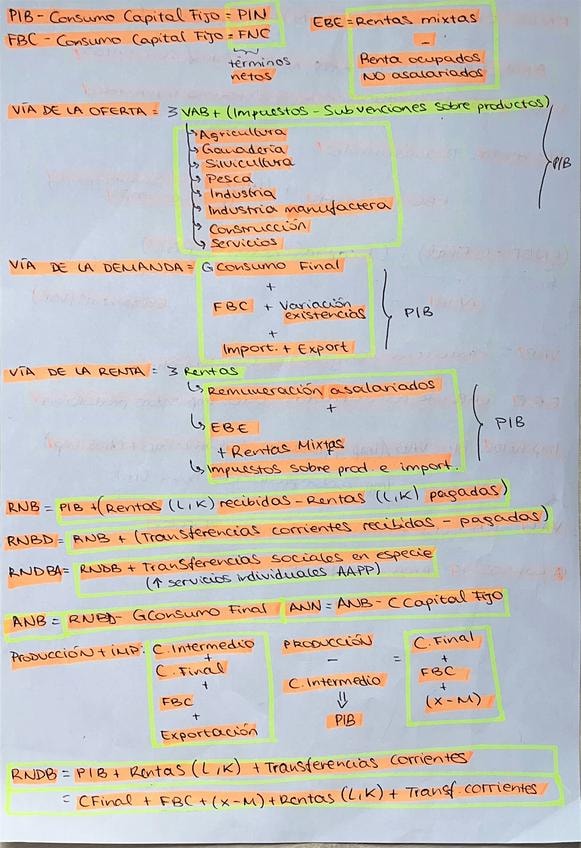 PIB - Consumo Capital Fijo = PIN
FBC - Consumo Capital Fijo = FNC
términos
netos
EBE = Rentas mixtas
-
Renta ocupados
NO asalariados
VÍA DE LA OFERTA = Ʒ VAB + (Impuestos - Subvenciones sobre productos)
↳ Agricultura
↳ Ganadería
↳ Silvicultura
↳ Pesca
↳ Industria
↳ Industria manufactera
↳ Construcción
↳ Servicios
PIB
VÍA DE LA DEMANDA = GConsumo Final
+
FBC + Variación
existencias
+
Import. + Export
PIB
VÍA DE LA RENTA = Ʒ Rentas
↳ Remuneración asalariados
+
↳ EBE
+ Rentas Mixtas
↳ Impuestos sobre prod. e import.
PIB
RNB = PIB + (Rentas (L,K) recibidas - Rentas (L,K) pagadas)
RNBD = RNB + (Transferencias corrientes recibidas - pagadas)
RNDBA = RNDB + Transferencias sociales en especie
(↑ servicios individuales AAPP)
ANB = RNBD - GConsumo Final ANN = ANB - CCapital Fijo
PRODUCCIÓN + IMP. = C. Intermedio
+
C. Final
+
FBC
+
Exportación
PRODUCCIÓN
-
C. Intermedio
⇓
PIB
=
C. Final
+
FBC
+
(X-M)
RNDB = PIB + Rentas (L,K) + Transferencias corrientes
= CFinal + FBC + (X-M) + Rentas (L,K) + Transf. corrientes